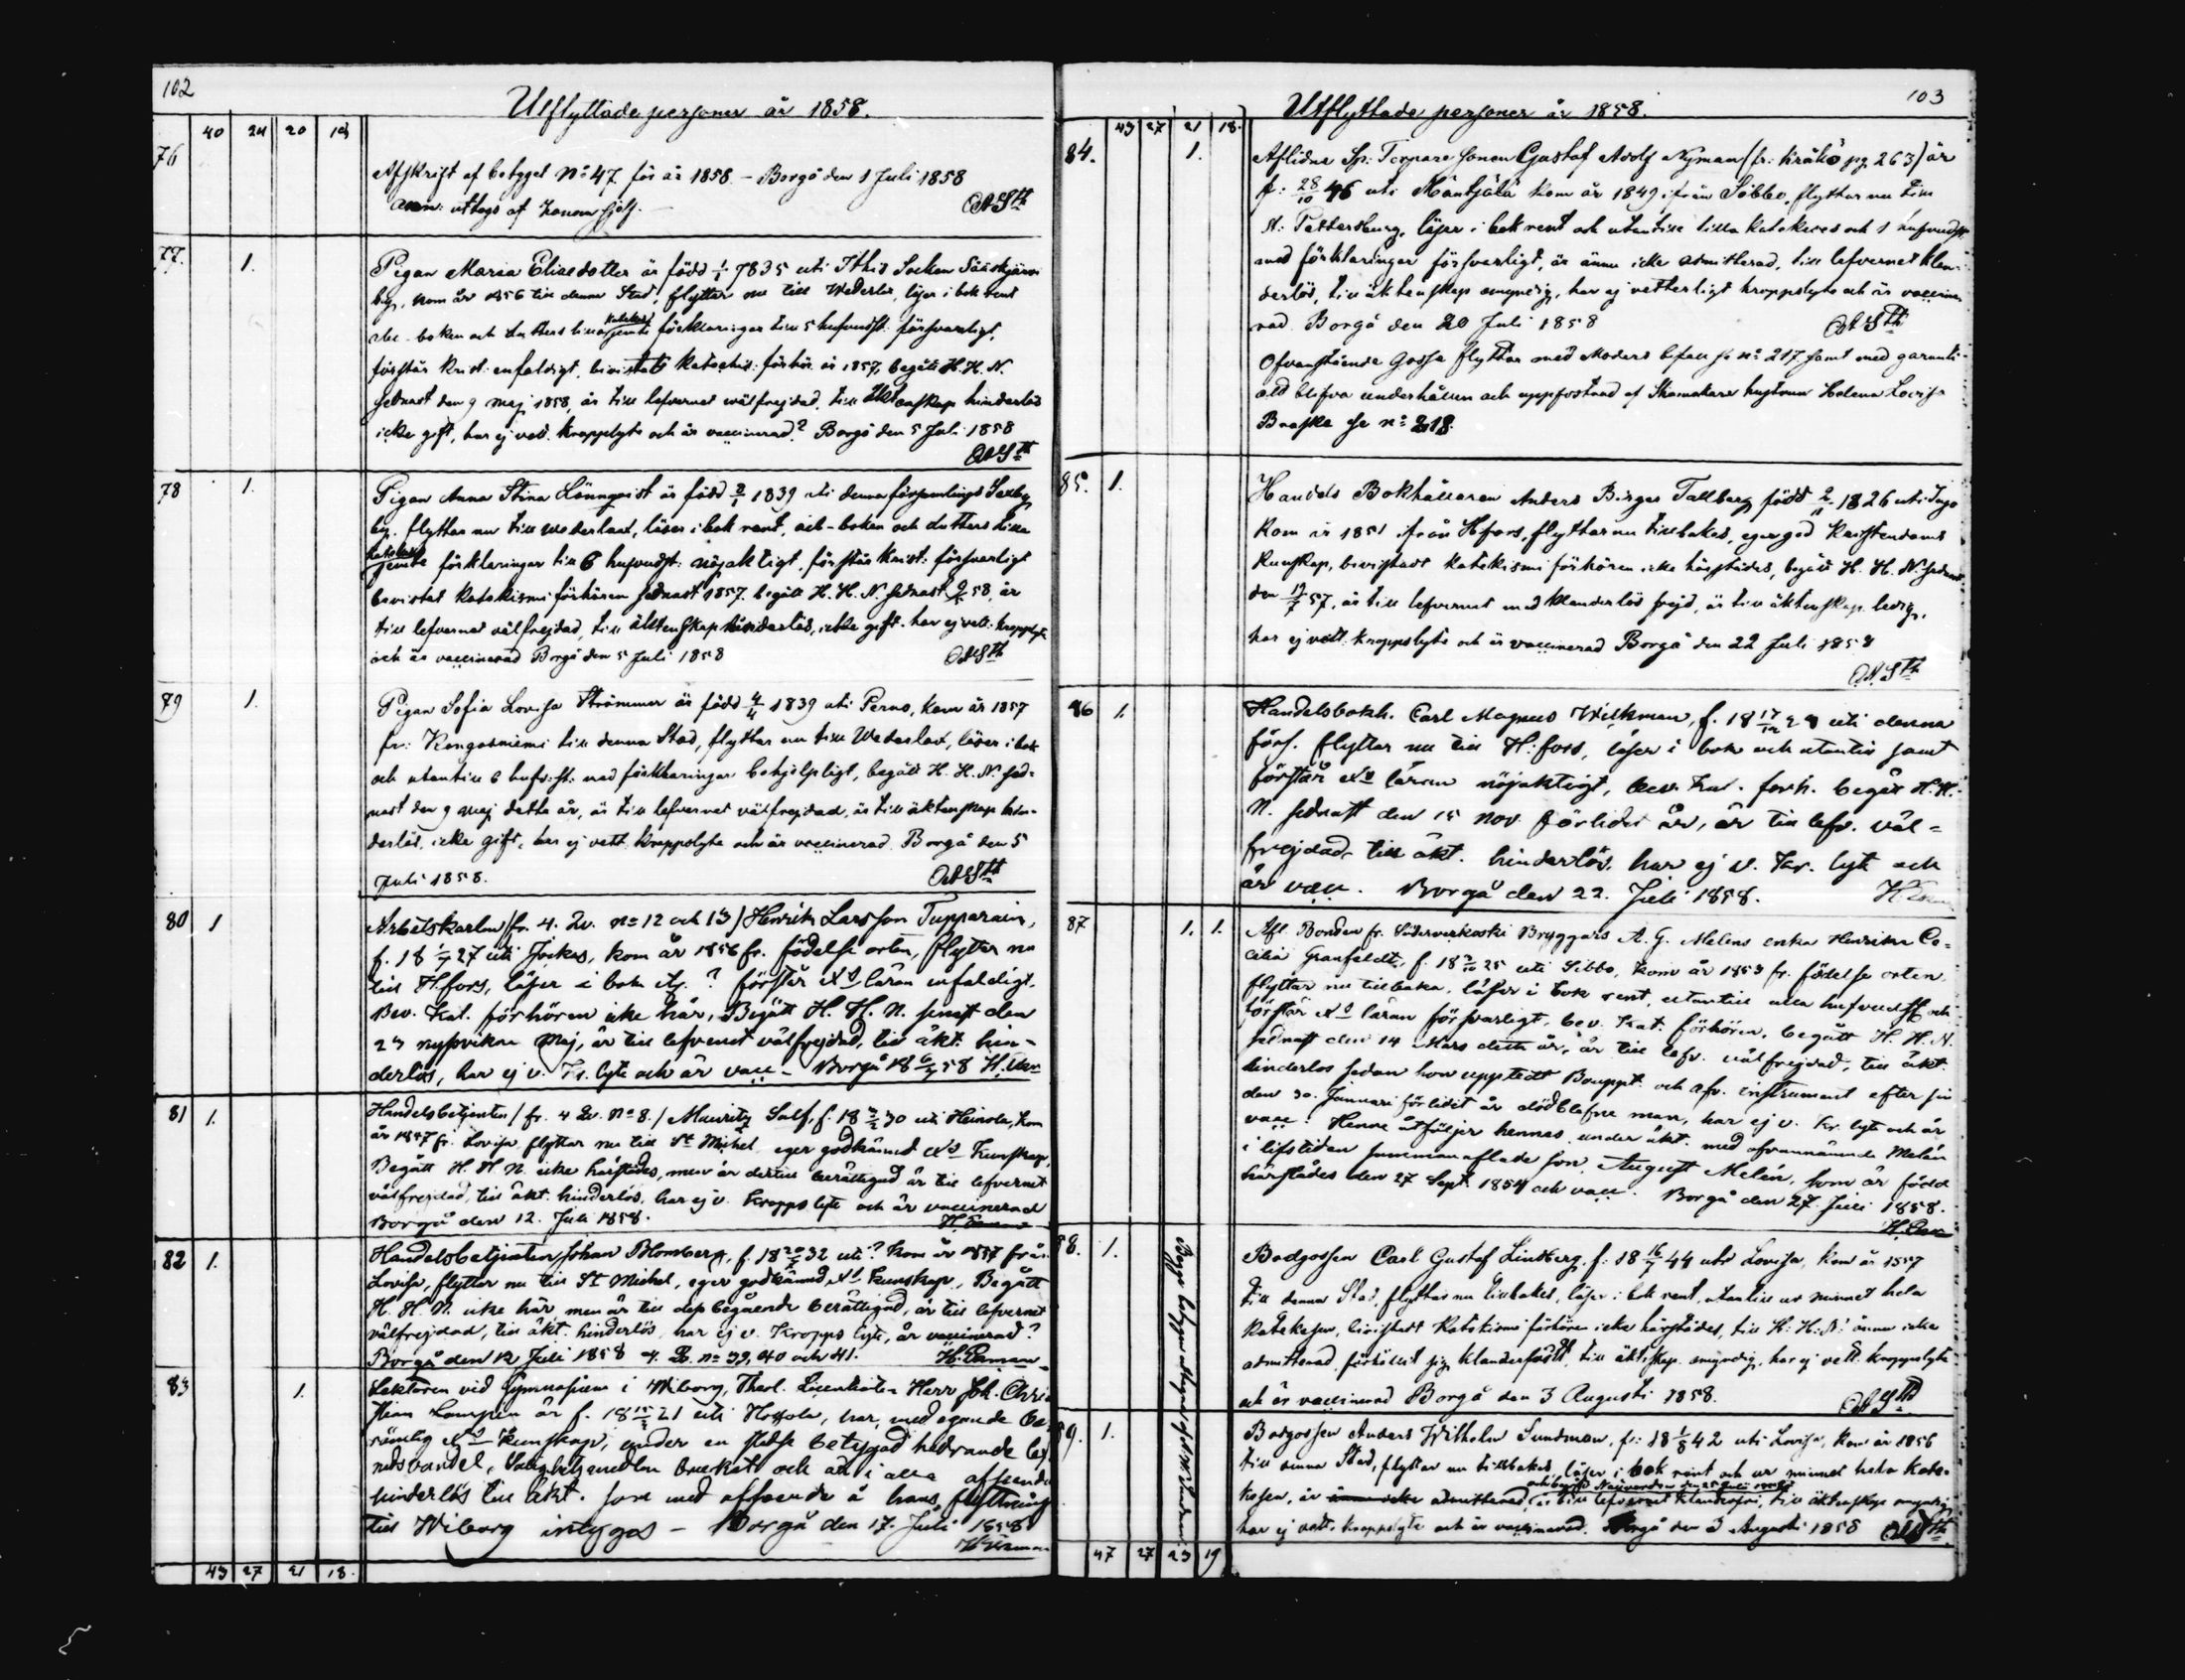 102
Utflyttade personer år 1858.
40 24 20 18
76
Afskrift af betyget No 47 för år 1858 - Borgå den 1 Juli 1858
uttogs af honom sjelf.
77. 1.
Pigan Maria Eliædotter är född 1/1 1835 uti Socken
by, kom år 1856 till denna Stad, flyttar nu till Wederlax, läser i bok rent
abc-boken och Luthers lilla katekes jemte förklaringar till 5 hufvudst. försvarligt,
förstår Krist: enfaldigt, bevistat Katechis: förhör år 1857, begått H. H. N.
sednast den 9 Maj 1858, är till lefvernet välfrejdad, till äktenskap hinderlös
icke gift, har ej vett. kroppslyte och är vaccinerad? Borgå den 5 Juli 1858
78 1.
Pigan Anna Stina Lönnqvist är född 1839 uti denna församlings Saxby
by, flyttar nu till Wederlax, läser i bok rent, abc-boken och Luthers lilla
katekes jemte förklaringar till 6 hufvudst: nöjaktigt, förstår Krist: försvarligt
bevistat Katekismiförhören sednast 1857. begått H. H. N. sednast 58, är
till lefvernet välfrejdad, till äktenskap hinderlös, icke gift. har ej vett: kroppslyte
och är vaccinerad Borgå den 5 Juli 1858
79 1.
Pigan Sofia Lovisa Strömmer är född 4/4 1839 uti Perno, kom år 1857
fr: Kangasniemi till denna Stad, flyttar nu till Wederlax, läser i bok
och utantill 6 hufv:st: med förklaringar behjelpligt, begått H. H. N. sed-
nast den 9 Maj detta år, är till lefvernet välfrejdad, är till äktenskap hin-
derlös, icke gift, har ej vett kroppslyte och är vaccinerad. Borgå den 5
Juli 1858.
80 1
Arbetskarlen (fr. 4. Qv. No 12 och 13) Henrik Larsson Tupparain,
f. 18 1/7 27 uti Jockas, kom år 1856 fr. födelse orten, flyttar nu
till H.fors, läser i bok ? förstår Xs läran enfaldigt.
Bev. Kat. förhören icke här, Begått H. H. N. senast den
23 nyssvikne Maj, är till lefvernet välfrejdad, till äkt. hin-
derlös, har ej v. Kr. lyte och är vacc - Borgå 18 6/7 58
81 1.
Handelsbetjenten (fr. 4 Qv. No 8.) Mauritz Salf, f. 18 30 uti Heinola, kom
år 1847 fr. Lovisa, flyttar nu till St Michel, eger godkänd Xs Kunskap,
Begått H. H. N. icke härstädes, men är dertill berättigad är till lefvernet
välfrejdad, till äkt. hinderlös, har ej v. kropps lyte och är vaccinerad
Borgå den 12. Juli 1858.
82 1.
Handelsbetjenten Johan Blomberg, f. 18 32 uti? kom år 1857 från
Lovisa, flyttar nu till St Michel, eger godkänd Xs kunskap, Begått
H. H. N. icke här men är till dess begående berättigad, är till lefvernet
välfrejdad, till äkt. hinderlös, har ej v. Kropps lyte, är vaccinerad?
Borgå den 12 Juli 1858 4. Qv. No 39, 40 och 41.
83 1.
Lektoren vid Gymnasium i Wiborg, Theol. Licentiaten Herr Joh. Chri
stian är f. 18 21 uti Hollola, har, med egande be
römlig Xs kunskap, under en städse betygad hedrande lef
nadsvandel, brukat och är i alla afseenden
hinderlös till äkt. som med afseende å hans flyttning
till Wiborg intygas - Borgå den 17. Juli 1858
43 27 21 18.
103
Utflyttade personer år 1858.
43 27 21 18.
84. 1.
Aflidne Sp: Torpare sonen Gustaf Adolf Nyman (fr: Kråkö pg. 263) är
f: 28/10 46 uti Mäntsälä kom år 1849 ifrån Sibbo, flyttar nu till
St: Pettersburg, läser i bok rent och utantill lilla katekesen och 1 hufvudst.
med förklaringar försvarligt, är ännu icke admitterad, till lefvernet klan-
derlös, till äktenskap omyndig, har ej vetterligt kroppslyte och är vaccine-
rad. Borgå den 20 Juli 1858
Ofvanstående Gosse flyttar med Moders bifall se No 217 samt med garanti
att blifva underhållen och uppfostrad af Skomakare hustrun Helena Lovisa
Braske se No 218.
85. 1.
Handels Bokhållaren Anders Birger Tallberg född 1826 uti Ingo
kom år 1851 ifrån H:fors, flyttar nu tillbakes, eger god Kristendoms
kunskap, bevistadt katekismi förhören icke härstädes, begått H. H. N. sednast
den 19/7 57, är till lefvernet med klanderlös frejd, är till äktenskap ledig,
har ej vett. kroppslyte och är vaccinerad Borgå den 22 Juli 1858
86 1.
Handelsbokh. Carl Magnus Wickman, f. 18 17/12 29 uti denna
förs. flyttar nu till H:fors, läser i bok och utantill samt
förstår Xs läran nöjaktigt, bev. Kat. förh. begått H. H.
N. sednast den 15 Nov. förlidet år, är till lefv. väl-
frejdad, till äkt. hinderlös, har ej v. Kr. lyte och
är vacc. Borgå den 22. Juli 1858.
87 1. 1.
Afl. Bonden fr. Söderveckoski Bryggars A. G. Melens enka Henrika Ce-
cilia Granfeldt, f. 18 25 uti Sibbo, kom år 1853 fr. födelse orten
flyttar nu tillbaka, läser i bok rent, utantill alla hufvudst. och
förstår Xs läran försvarligt, bev. Kat. förhören, begått H. H. N.
sednast den 14 Mars detta år, är till lefv. välfrejdad, till äkt.
hinderlös sedan hon uppstedt Bouppt. och afv. instrument efter sin
den 30. Januari förlidet år dödblefne man, har ej v. Kr. lyte och är
vacc. Henne åtföljer hennes under äkt. med ofvannämnde Melén
i lifstiden sammanaflade son, August Melén, som är född
härstädes den 27 Sept 1854 och vacc. Borgå den 27. Juli 1858.
88. 1.
Bodgossen Carl Gustaf Lindberg, f: 18 16/7 44 uti Lovisa, kom år 1857
till denna Stad, flyttar nu tillbakes, läser i bok rent, utantill ur minnet hela
Katekesen, bevistadt Katekismi förhören icke härstädes, till H: H: N: ännu icke
admitterad, förhållit sig klanderfritt, till äkt:skap omyndig, har ej vett. kroppslyte
och är vaccinerad Borgå den 3 Augusti 1858.
Begge betygen uttagna af
89. 1.
Bodgossen Anders Wilhelm Sundman, f: 18 1/8 42 uti Lovisa, kom år 1856
till denna Stad, flyttar nu tillbakes, läser i bok rent och ur minnet hela Kate-
kesen, är ännu icke admitterad, är till lefvernet klanderfri, till äktenskap omyndig
har ej vett. kroppslyte och är vaccinerad. Borgå den 3 Augusti 1858
47 27 23 19